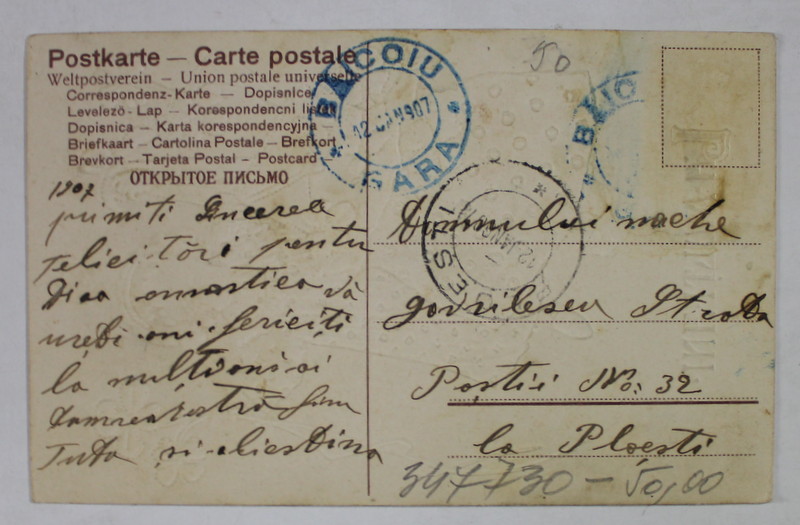 Postkarte — Carte postale
Weltpostverein — Union postale universelle
Correspondenz-Karte — Dopisnice
Levelező-Lap — Korespondencni listek
Dopisnica — Karta korespondencyjna
Briefkaart — Cartolina Postale — Brefkort
Brevkort — Tarjeta Postal — Postcard
ОТКРЫТОЕ ПИСЬМО
BAICOIU
12 IAN 907
GARA
BAICO
50
1907
primiti Sincerea
felicitări pentru
Dioa onomastica vă
uredi ani fericiți
la mulți ani ai
Domnului nache
gavrilescu Strada
Poștii No: 32
la Ploești
347730 — 50,00